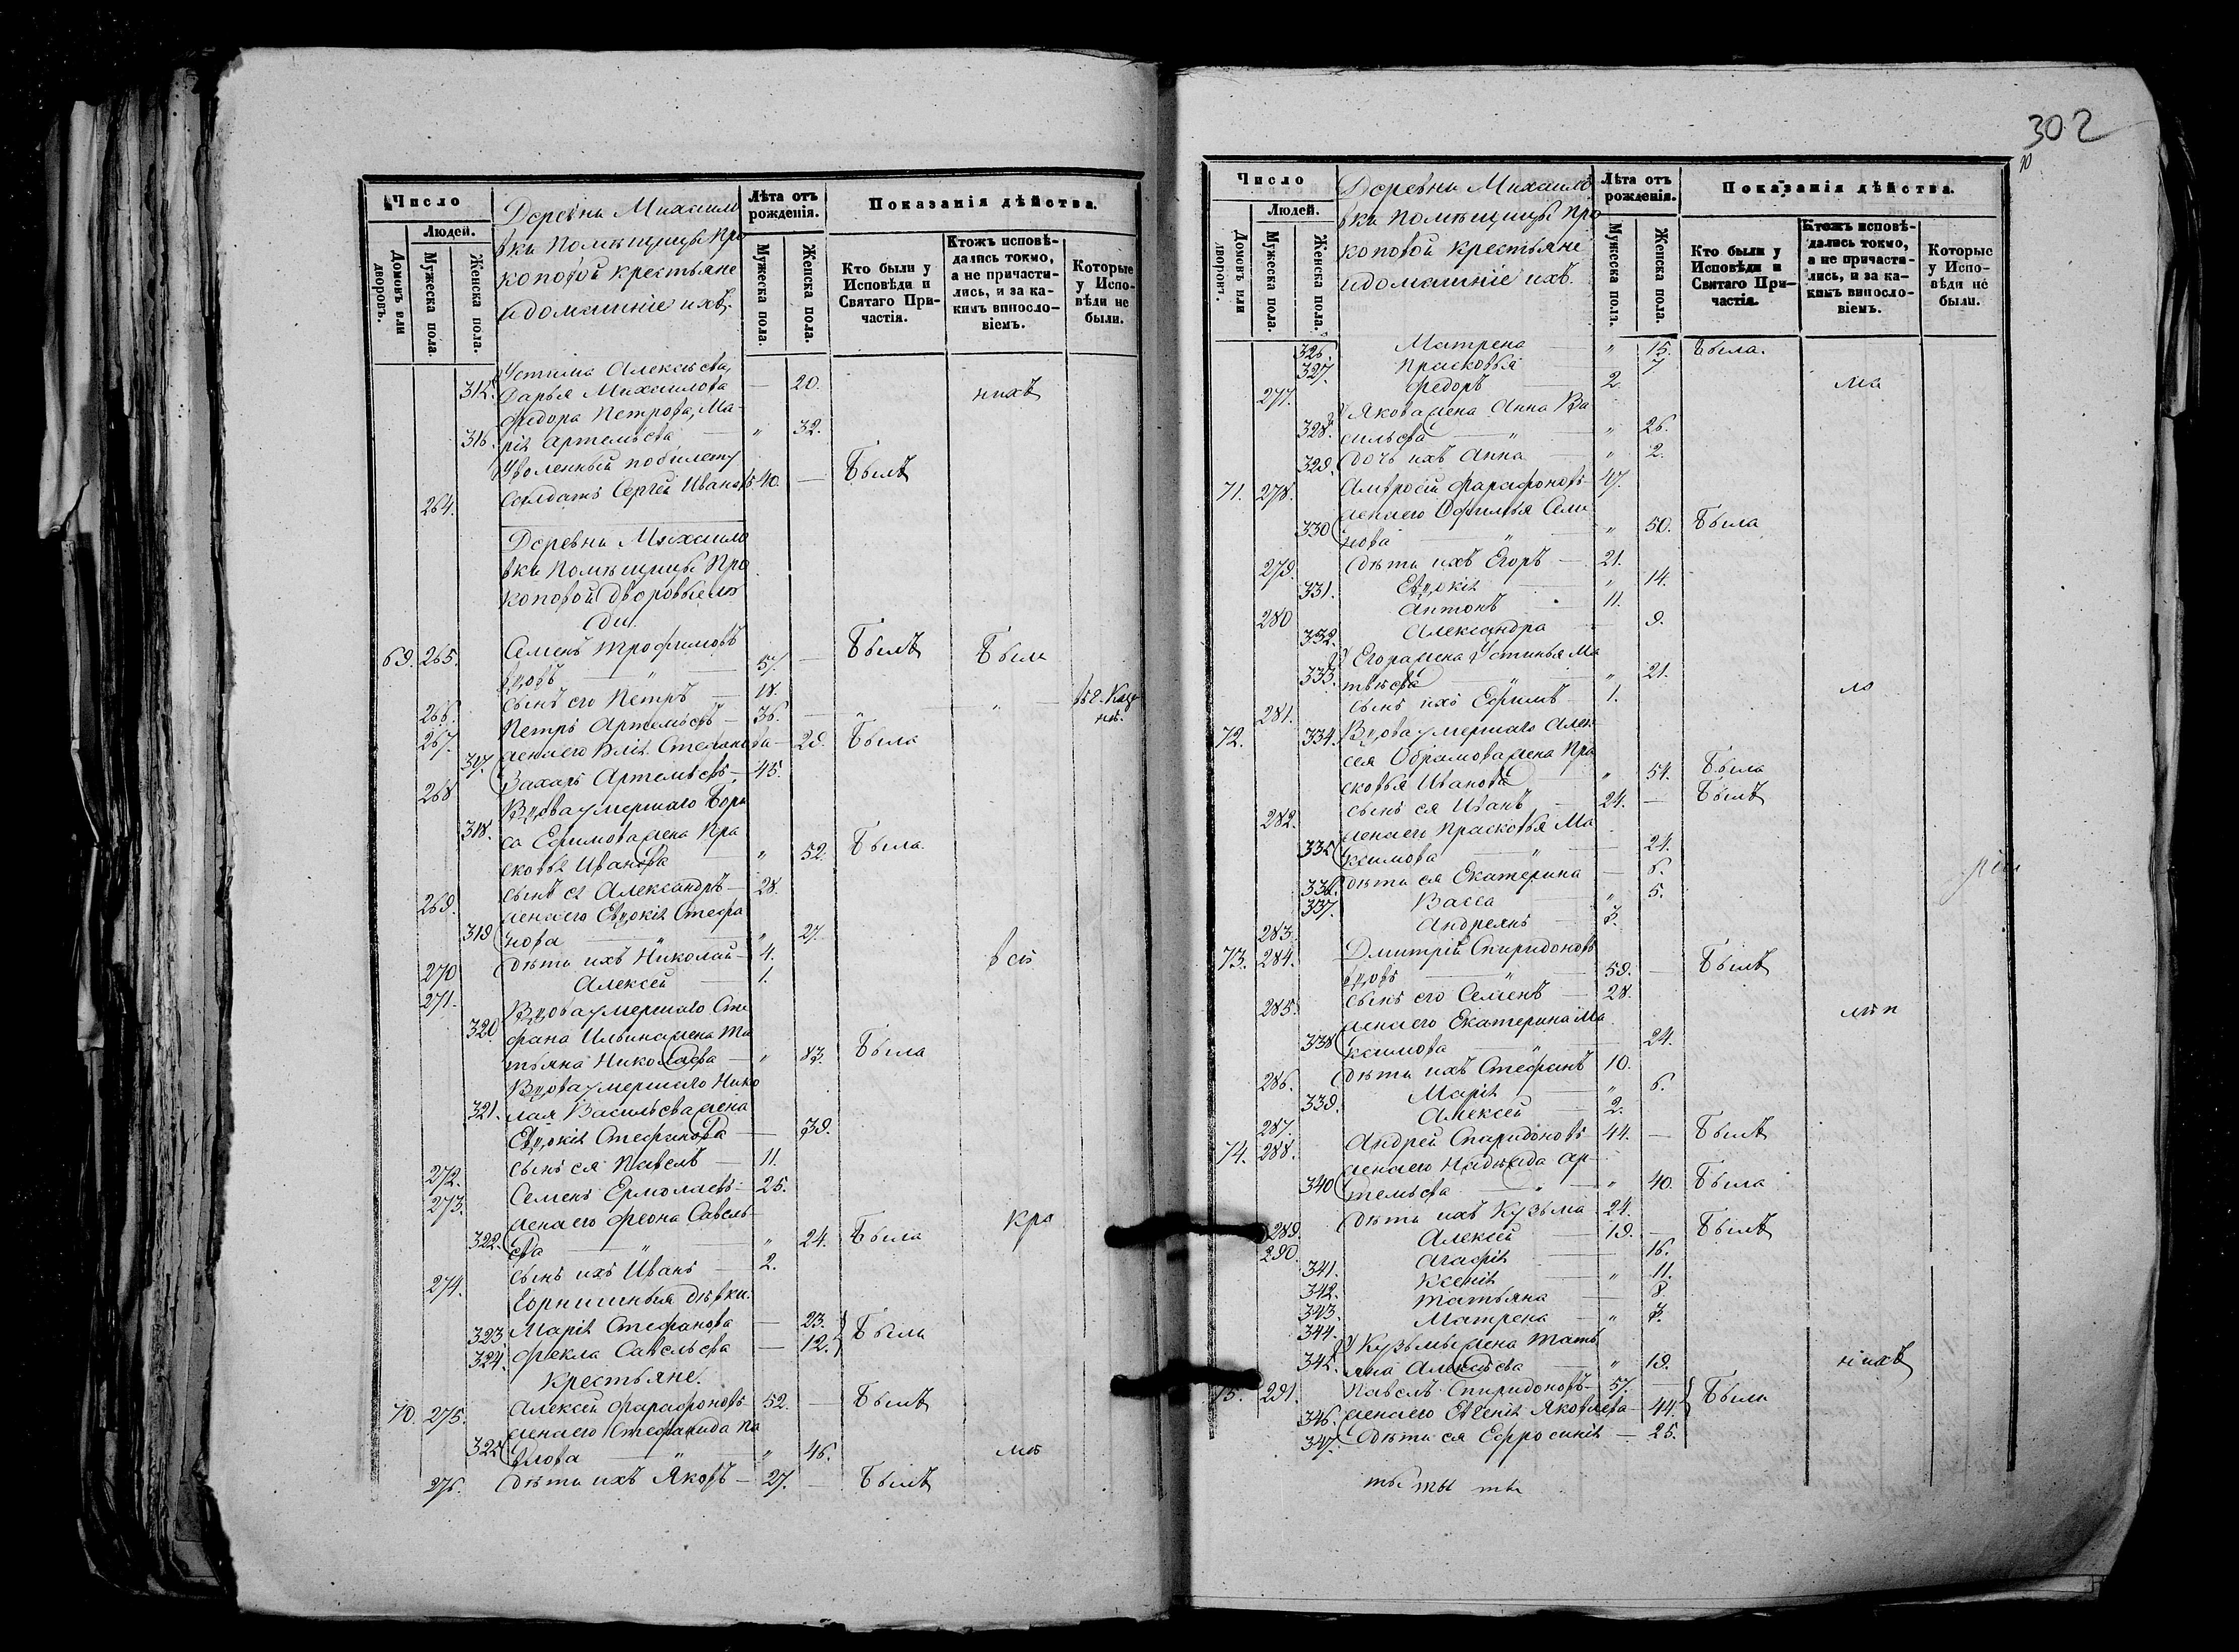 Число
Людей.
Домовъ или дворовъ.
Мужеска пола.
Женска пола.
Деревни Михайло
вки Помѣщицы Про
копов­ой крестьяне
и домашніе ихъ.
Лѣта отъ рожденія.
Мужеска пола.
Женска пола.
Показанія дѣйства.
Кто были у Исповѣди и Святаго Причастія.
Ктожъ исповѣ-
дались токмо,
а не причасти-
лись, и за ка-
кимъ винносло-
віемъ.
Которые
у Испо-
вѣди не
были.
Устина Алексѣева,
315. Дарья Михайлова — 20.
Федора Петрова, Ма-
316. рія Артемьева — " 32.
Уволенный по билету
264. Солдатъ Сергей Ивановъ 40. — Былъ
нихъ
Деревни Михайло
вки Помѣщицы Про
коповой дворовые лю
ди.
69. 265. Семенъ Трофимовъ
вдовъ — " 57. — Былъ
Были
266. Сынъ его Петръ — 18.
267. Петръ Артемьевъ — 36.
317. жена его Стефанова — 29. Была
268 Захаръ Артемьевъ — 45.
Вдова умершаго Бори
318. са Ефимова жена Пра
сковья Иванова " 52. Была
269. Сынъ ея Александръ — 28.
жена его Евдокія Стефа
319 нова " " 27.
270 Дѣти ихъ Николай — 4.
271. Алексей — 1.
всѣ
Вдова умершаго Сте
320 фана Ильина жена Та
тьяна Николаева — " 83. Была
Вдова умершаго Нико
321. лая Васильева жена
Евдокія Стефанова — 39.
272. Сынъ ея Павелъ — 11.
273. Семенъ Ермолаевъ — 25.
жена его Феона Савель
322. ева " " 24. Была
кро
274. Сынъ ихъ Иванъ — 2.
Горнишныя дѣвки.
323 Марія Стефанова — 23.
324. Фекла Савельева — 12. } Были
Крестьяне.
70. 275. Алексей Фарафоновъ 52. — Былъ
жена его Стефанида Па
325 влова " " 46.
276. Дѣти ихъ Яковъ — 27. — Былъ
302
Число
Людей.
Домовъ или дворовъ.
Мужеска пола.
Женска пола.
Деревни Михайло
вки Помѣщицы Про
коповой крестьяне
и домашніе ихъ.
Лѣта отъ рожденія.
Мужеска пола.
Женска пола.
Показанія дѣйства.
Кто были у
Исповѣди и
Святаго При-
частія.
Ктожъ исповѣ-
дались токмо,
а не причасти-
лись, и за ка-
кимъ винносло-
віемъ.
Которые
у Испо-
вѣди не
были.
326. Матрена " 15. Была.
327. Прасковья 7
277. Федоръ 2.
Якова жена Анна Ва
328. сильева — " " 26.
329. Дочь ихъ Анна " 2.
71. 278. Амвросій Фарафоновъ 47.
жена его Офимья Семе
330 нова " " 50. Была
279. Дѣти ихъ Егоръ — 21.
331. Евдокія " 14.
280 Антонъ 11.
332. Александра 9.
Егора жена Устинья Ма
333. твѣева " " 21.
281. Сынъ ихъ Ефимъ 1.
72. 334. Вдова умершаго Алек
сея Обрамова жена Пра
сковья Иванова " 54. Была
282. Сынъ ея Иванъ 24. — Былъ
жена его Прасковья Ма
335 ксимова " 24.
336. Дѣти ея Екатерина — 6.
337. Васса " 5.
283. Андреянъ 3.
73. 284. Дмитрій Спиридоновъ
вдовъ " 59. — Былъ
285. Сынъ его Семенъ — 28.
жена его Екатерина Ма
338 ксимова " 24.
286. Дѣти ихъ Стефанъ 10.
339. Марія " 6.
287. Алексей 2.
74. 288. Андрей Спиридоновъ 44. — Былъ
жена его Надежда Ар
340 темьева " " 40. Была
289. Дѣти ихъ Кузьма 24.
290. Алексей 19. — Былъ
341. Агафія 16.
342. Ксенія " 11.
343. Татьяна 8.
344. Матрена " 3.
Кузьмы жена Тать
345. яна Алексѣева " 19.
нихъ
75. 291. Павелъ Спиридоновъ — 57.
346. жена его Евгенія Яковлева — 44. } Были
347. Дѣти ея Ефросинія — 25.
ты ты ты